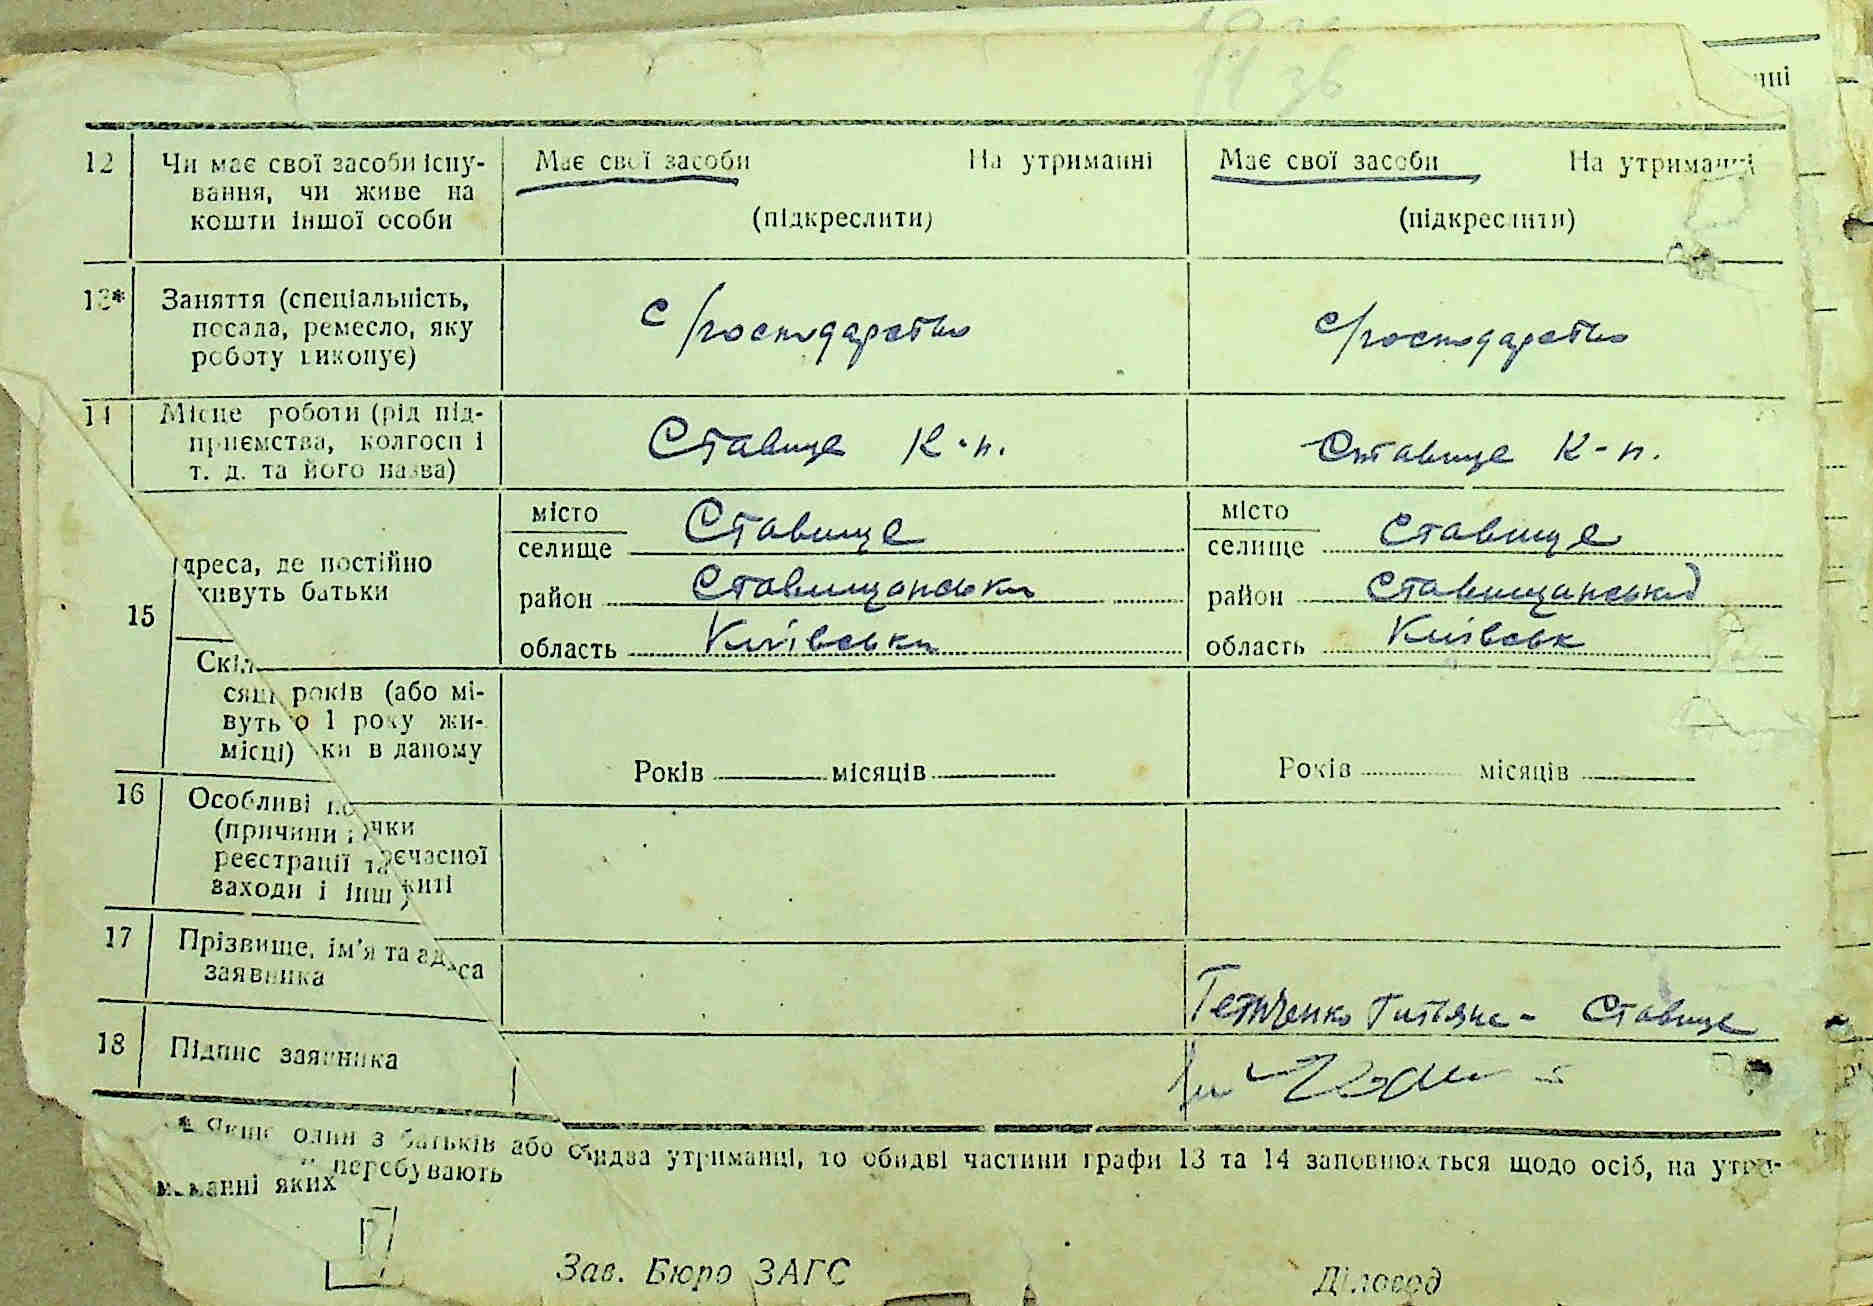 11 зв
нні
12 Чи має свої засоби існу- Має свої засоби На утриманні Має свої засоби На утриманні
вання, чи живе на
кошти іншої особи (підкреслити) (підкреслити)
13* Заняття (спеціальність,
посада, ремесло, яку с/господарство с/господарство
роботу виконує)
14 Місце роботи (рід під-
приємства, колгосп і Ставище К-п. Ставище К-п.
т. д. та його назва)
місто Ставище місто Ставище
селище селище
дреса, де постійно
живуть батьки район Ставищански район Ставищанський
15
область Київська область Київськ
Скіл
сяц років (або мі-
вуть о 1 року жи-
місці) ки в даному Років місяців Років місяців
16 Особливі по
(причини чки
реєстрації та єчасної
заходи і інш житі
17 Прізвище, ім'я та ад са
заявника Тетяна - Ставище
18 Підпис заявника
* Якщо один з батьків або обидва утриманці, то обидві частини графи 13 та 14 заповнюються щодо осіб, на утри-
манні яких перебувають
Зав. Бюро ЗАГС Діловод